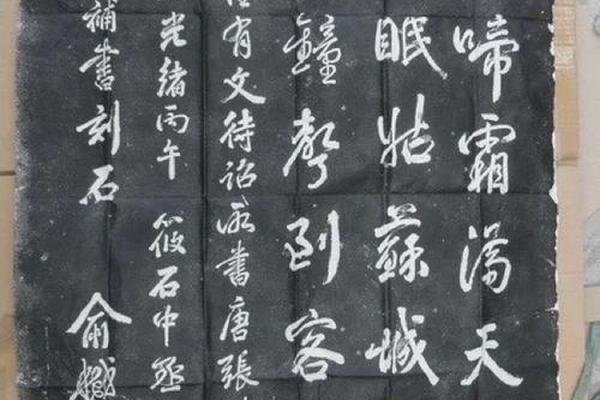 啼霜滿天
眠姑蘇城
鐘聲到客
有文待詔所書唐張
光緒丙午 筱石中丞
補書刻石 俞樾